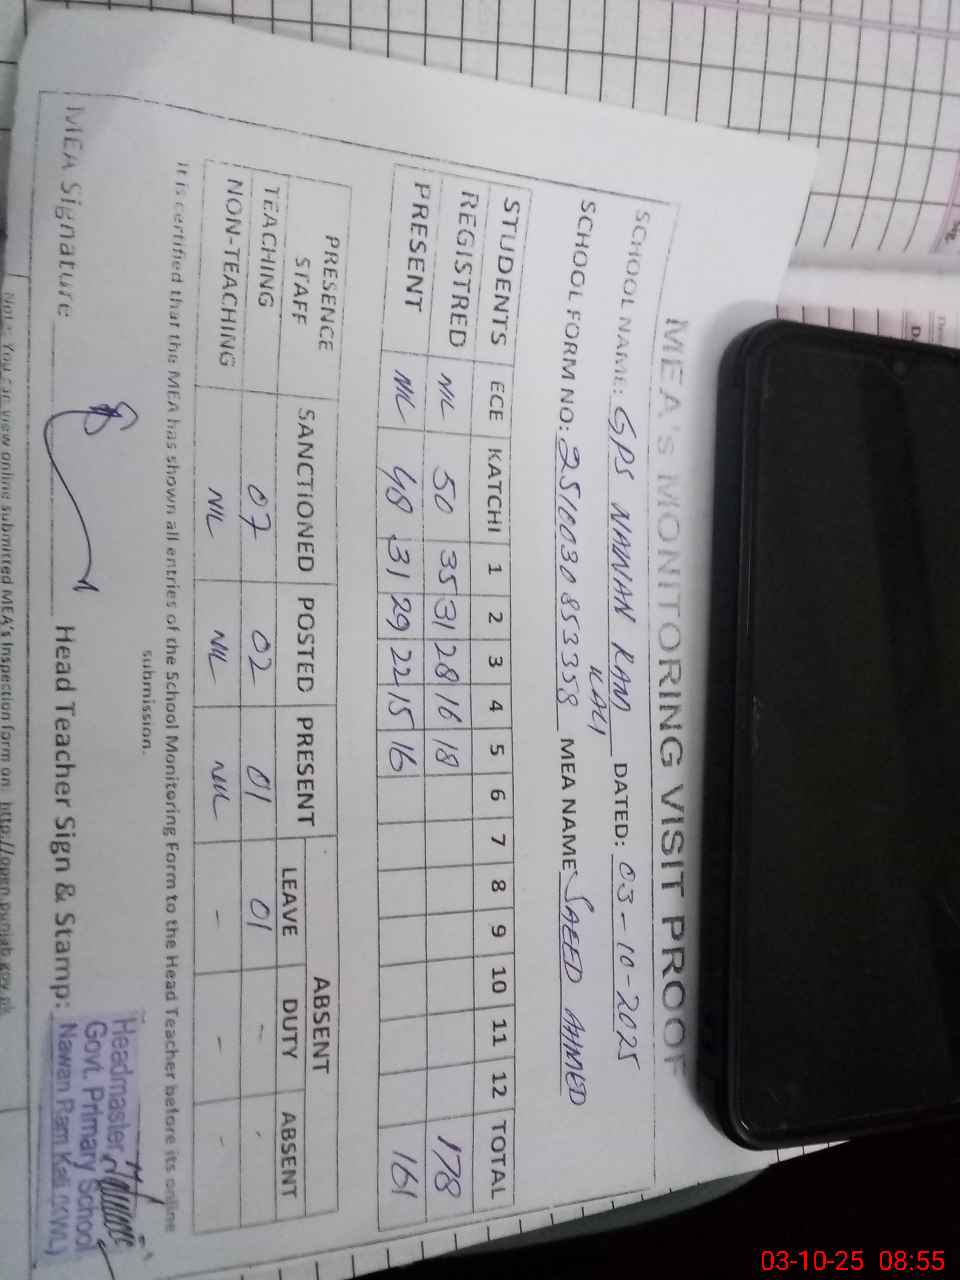 MEA's MONITORING VISIT PROOF
SCHOOL NAME: GPS NAWAN RAM KALI DATED: 03-10-2025
SCHOOL FORM NO: 2510030853358 MEA NAME SAEED AHMED
STUDENTS ECE KATCHI 1 2 3 4 5 6 7 8 9 10 11 12 TOTAL
REGISTRED NIL 50 35 31 28 16 18 178
PRESENT NIL 48 31 29 22 15 16 161
PRESENCE STAFF SANCTIONED POSTED PRESENT ABSENT
LEAVE DUTY ABSENT
TEACHING 07 02 01 01 - -
NON-TEACHING NIL NIL NIL - - -
It is certified that the MEA has shown all entries of the School Monitoring Form to the Head Teacher before its online
submission.
MEA Signature Head Teacher Sign & Stamp:
Headmaster
Govt. Primary School
Nawan Ram Kali (KWL)
Note: You can view online submitted MEA's Inspection form on http://open.punjab.gov.pk
03-10-25 08:55